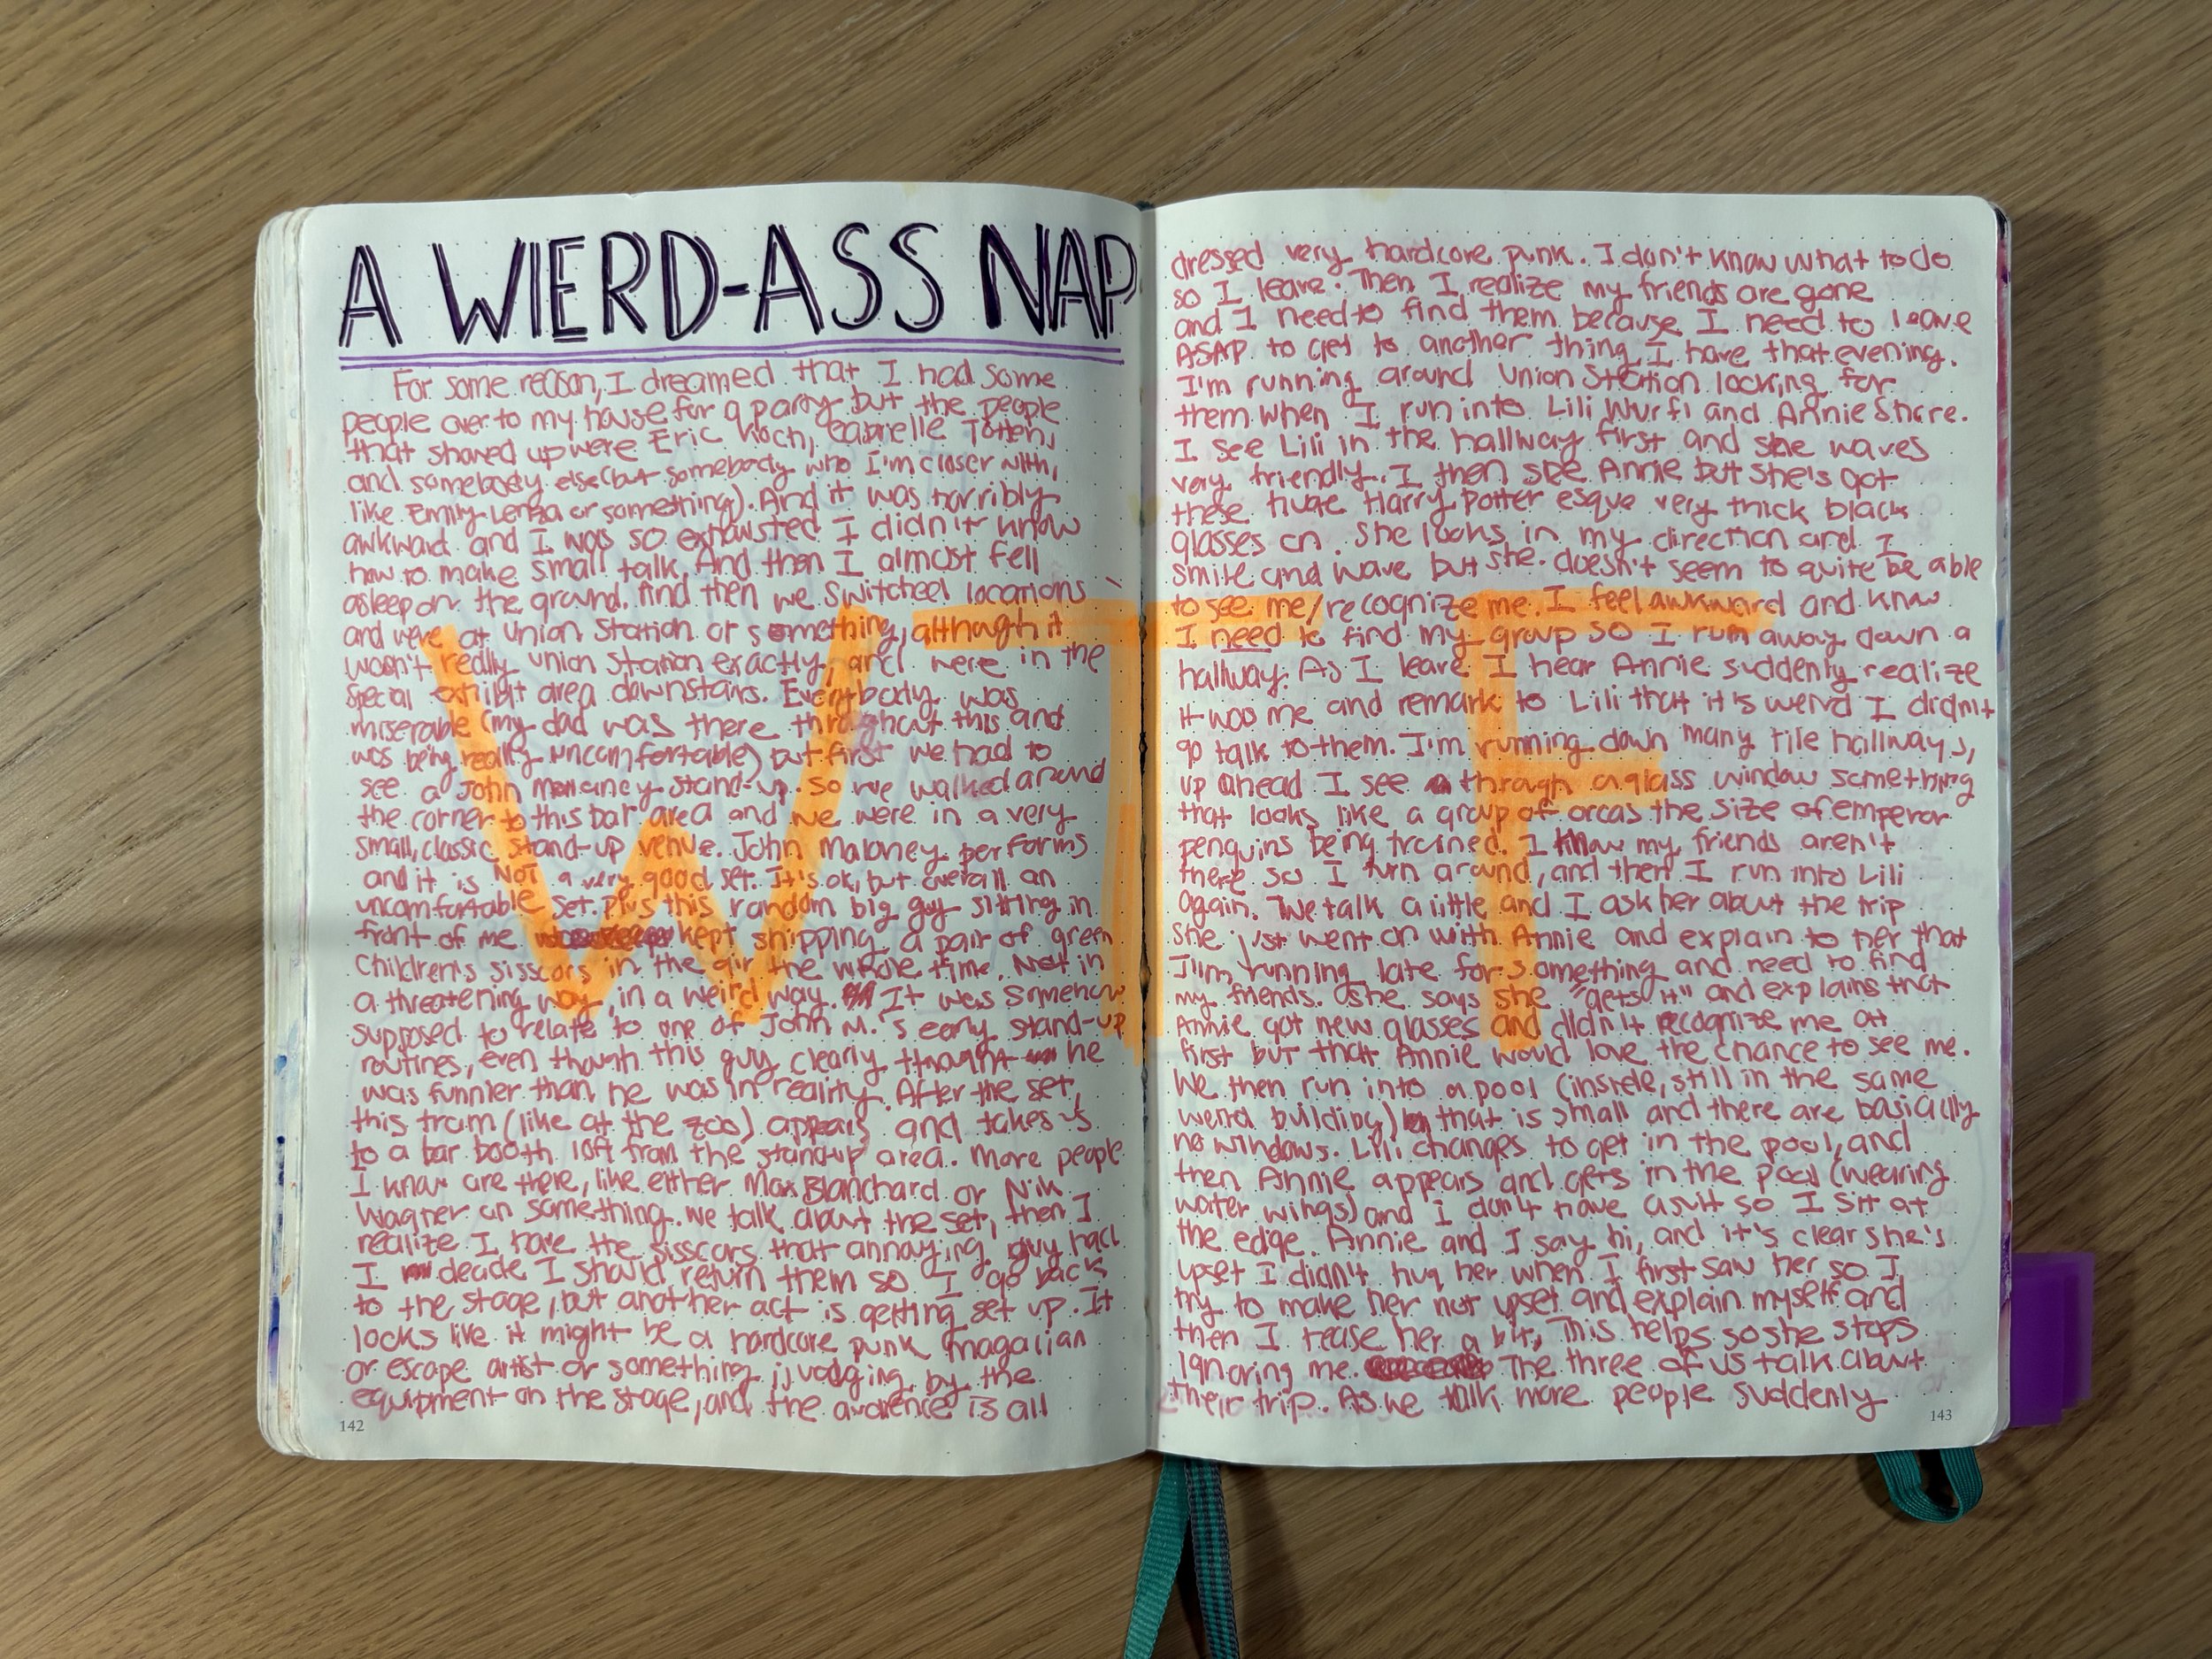 A WIERD-ASS NAP
For some reason, I dreamed that I had some
people over to my house for a party but the people
that showed up were Eric Koch, Gabrielle Totten,
and somebody else (but somebody who I'm closer with,
like Emily or something). And it was horribly
awkward and I was so exhausted I didn't know
how to make small talk. And then I almost fell
asleep on the ground. And then we switched locations
and were at Union Station or something, although it
wasn't really Union Station exactly, and were in the
special exhibit area downstairs. Everybody was
miserable (my dad was there throughout this and
was being really uncomfortable) but first we had to
see a John stand-up. So we walked around
the corner to this bar area and we were in a very
small, classic stand-up venue. John Maloney performs
and it is NOT a very good set. It's ok, but overall an
uncomfortable set. Plus this random big guy sitting in
front of me kept snipping a pair of green
Children's sisscors in the air the whole time. Not in
a threatening way, in a weird way. It was somehow
supposed to relate to one of John M.'s early stand-up
routines, even though this guy clearly thought he
was funnier than he was in reality. After the set,
this tram (like at the zoo) appears and takes us
to a bar booth loft from the standup area. More people
I know are there, like either Max Blanchard or Nik
Wagner or something. We talk about the set, then I
realize I have the sisscors that annoying guy had.
I decide I should return them so I go back
to the stage, but another act is getting set up. It
looks like it might be a hardcore punk magaiian
or escape artist or something judging by the
equipment on the stage, and the audience is all
142
dressed very hardcore punk. I don't know what to do
so I leave. Then I realize my friends are gone
and I need to find them because I need to leave
ASAP to get to another thing I have that evening.
I'm running around Union Station looking for
them when I run into Lili Wurfl and Annie Shore.
I see Lili in the hallway first and she waves
very friendly. I then see Annie but she's got
these huge Harry Potter esque very thick black
glasses on. She looks in my direction and I
smile and wave but she doesn't seem to quite be able
to see me/recognize me. I feel awkward and know
I need to find my group so I run away down a
hallway. As I leave I hear Annie suddenly realize
it was me and remark to Lili that it's weird I didn't
go talk to them. I'm running down many tile hallways,
up ahead I see through a glass window something
that looks like a group of orcas the size of emperor
penguins being trained. I know my friends aren't
there so I turn around, and then I run into Lili
again. We talk a little and I ask her about the trip
she just went on with Annie and explain to her that
I'm running late for something and need to find
my friends. She says she "gets it" and explains that
Annie got new glasses and didn't recognize me at
first but that Annie would love the chance to see me.
We then run into a pool (inside, still in the same
weird building) that is small and there are basically
no windows. Lili changes to get in the pool, and
then Annie appears and gets in the pool (wearing
water wings) and I don't have a suit so I sit at
the edge. Annie and I say hi, and it's clear she's
upset I didn't hug her when I first saw her so I
try to make her not upset and explain myself and
then I tease her a bit. This helps so she stops
ignoring me. The three of us talk about
their trip. As we talk more people suddenly
143
WTF